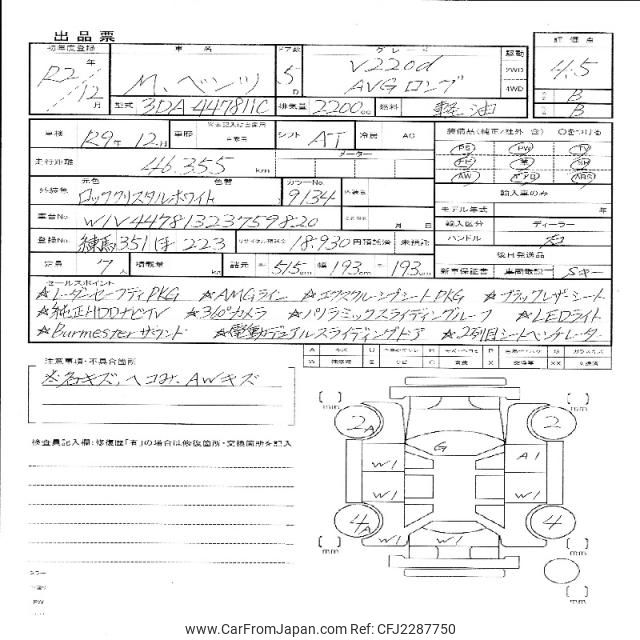 出品票
初年度登録 車名 ドア数 グレード 駆動 評価点
R2年 12月 M.ベンツ 5D V220d AVG ロング 2WD 4WD 4.5
型式 3DA-447811C 排気量 2200cc 燃料 軽油 B B
車検 R9年 12月 車歴 シフト AT 冷房 AC 装備品(純正/社外 含) Oをつける
PS PW TV
走行距離 46,355 km メーター
AW ABS
外装色 元色 ロッククリスタルホワイト 色替 カラーNo 9134 輸入車のみ
モデル年式 年
車台No. W1V44781323759820 月 日 輸入区分 ディーラー
登録No. 練馬 351 223 リサイクル預託金 18,930 円預託済 未預託 ハンドル 右
定員 7人 積載量 kg 諸元 515cm 幅 193cm 193cm 後日発送品 新車保証書 Sキー
セールスポイント
☆レーダーセーフティPKG ☆AMGライン ☆エクスクルーシブシートPKG ☆ブラックレザーシート
☆純正HDDナビTV ☆360°カメラ ☆パノラミックスライディングルーフ ☆LEDライト
☆Burmesterサウンド ☆電動デュアルスライディングドア ☆2列目シートベンチレーター
注意事項・不具合箇所
キズ、ヘコみ、AWキズ
検査員記入欄:修復歴「有」の場合は修復箇所・交換箇所を記入
2A 2
G
W1 A1
W1 W1
4A 4
W1 W1
mm mm
mm mm
mm
CarFromJapan.com CFJ2287750